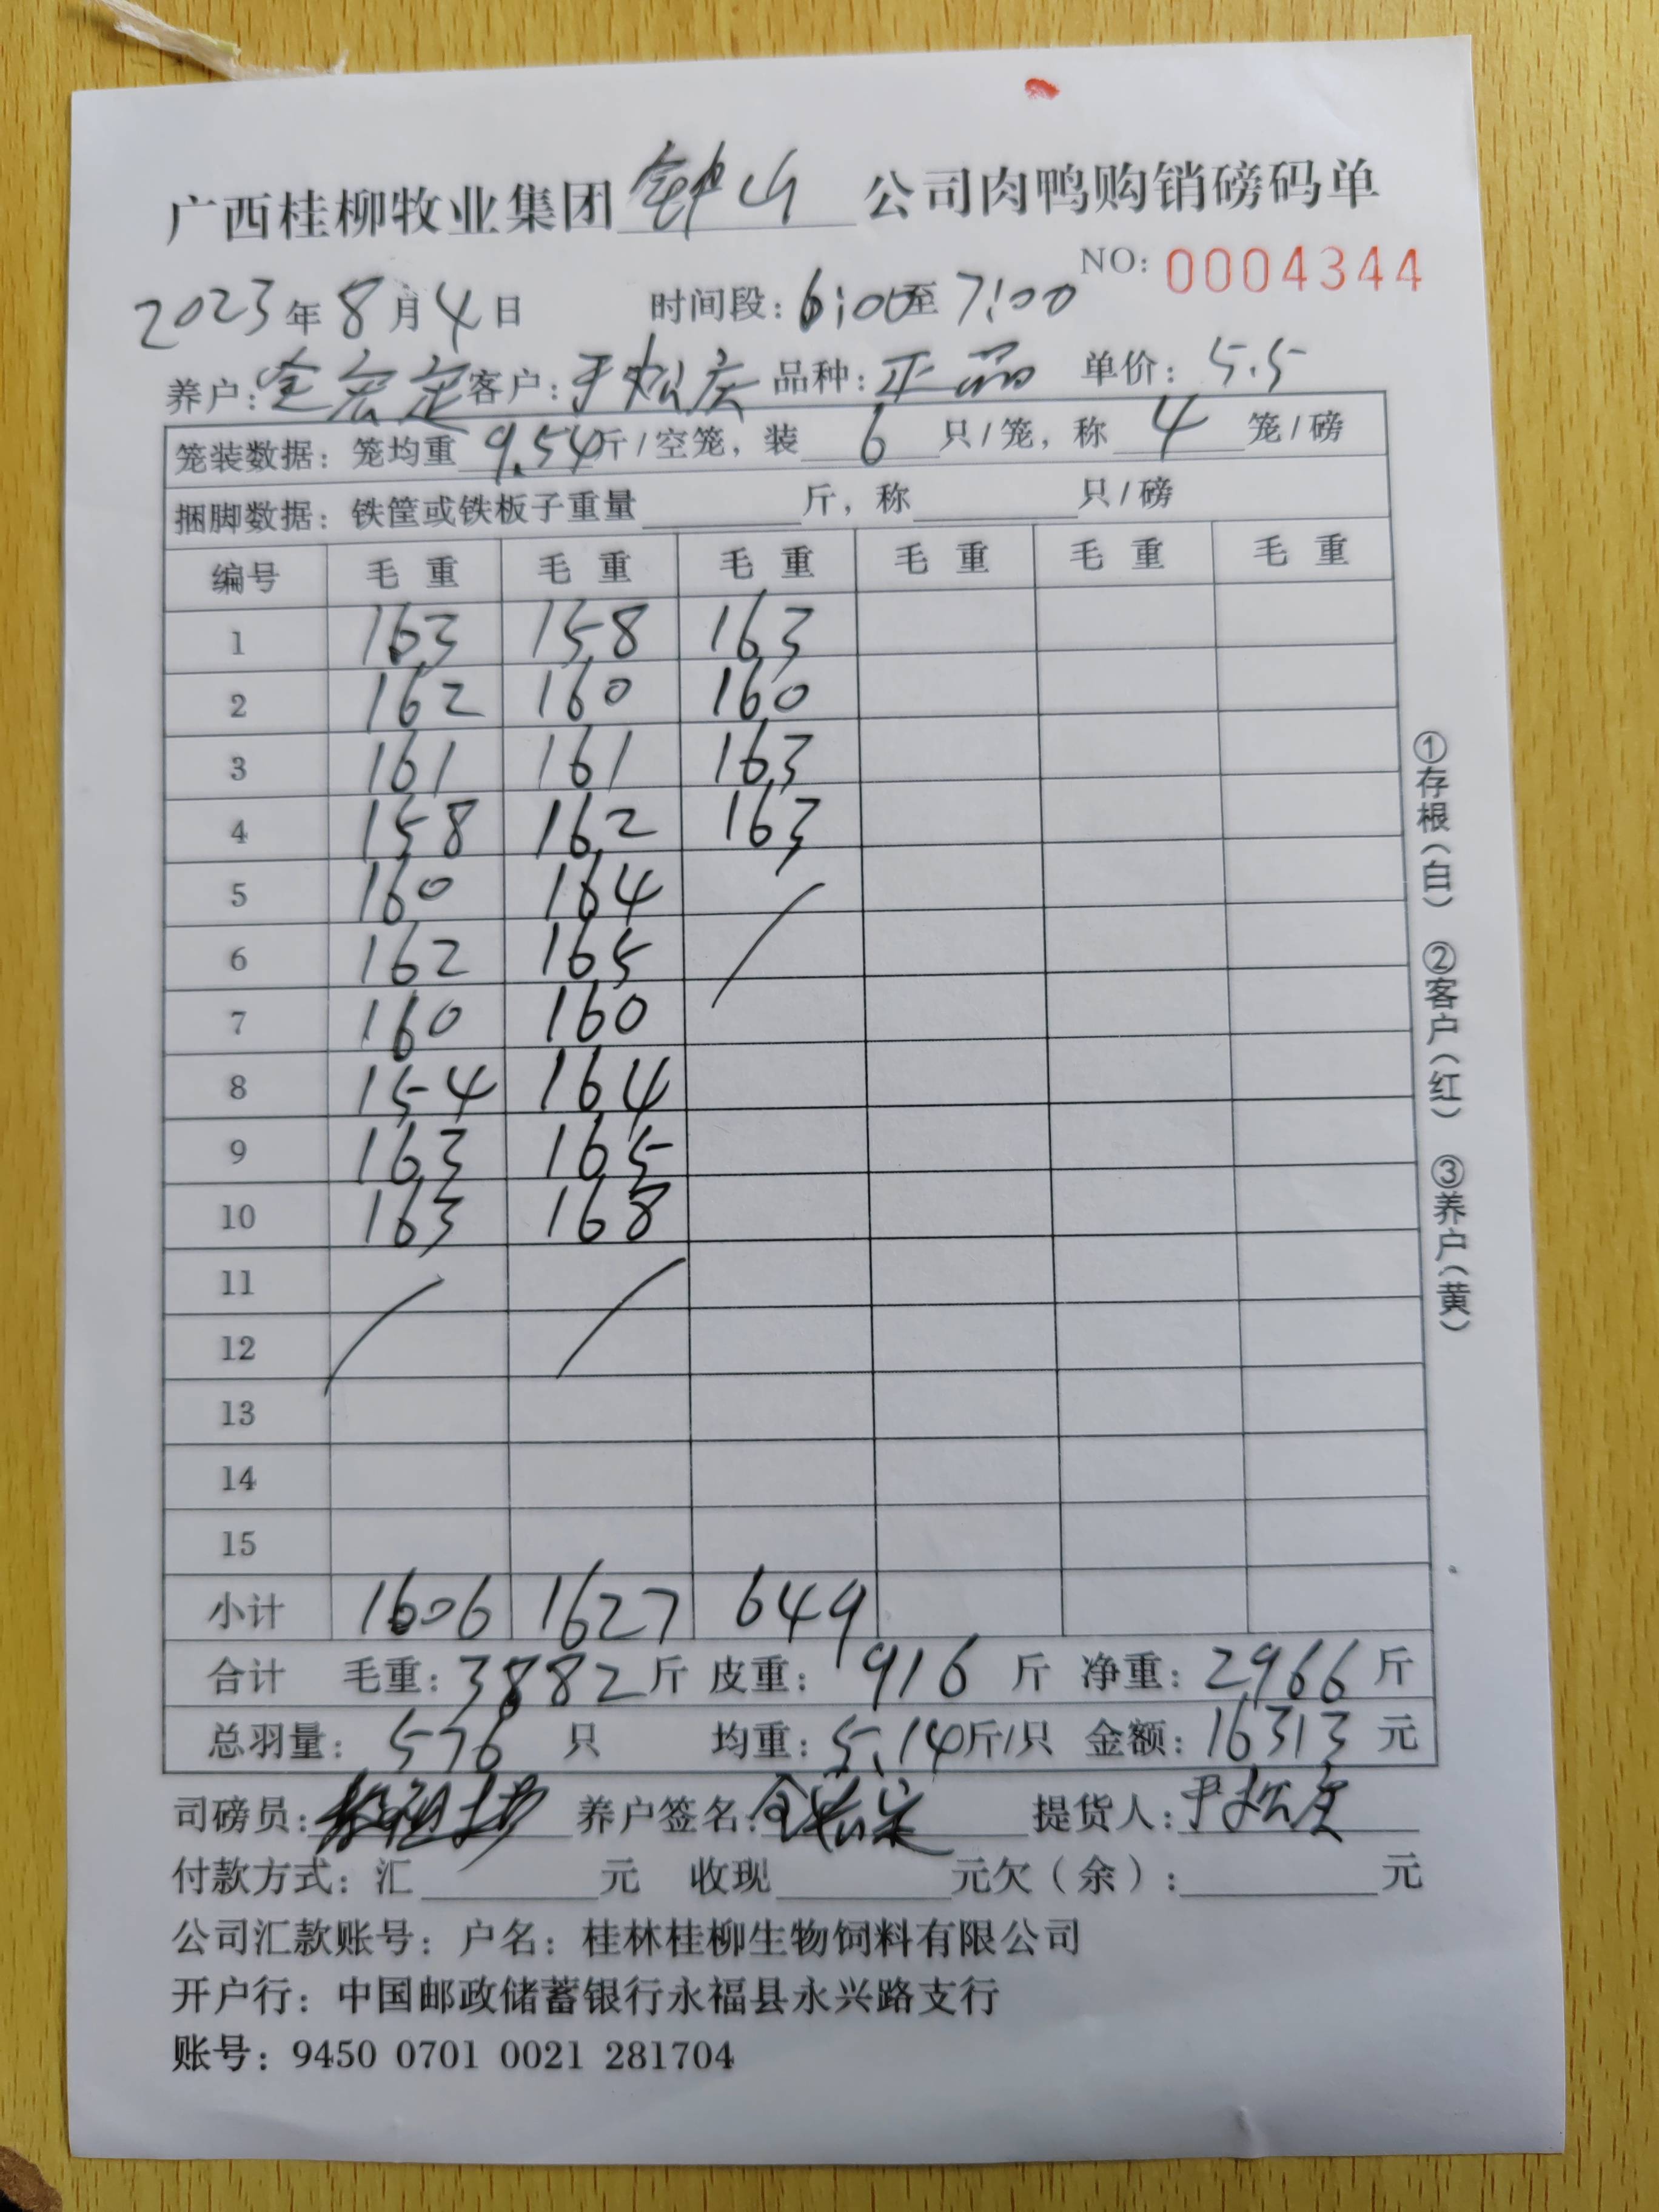 广西桂柳牧业集团 钟山 公司肉鸭购销磅码单
NO: 0004344
2023年8月4日 时间段: 6:00至7:00
养户: 全宏定 客户: 尹松庆 品种: 正品 单价: 5.5
笼装数据: 笼均重9.54斤/空笼, 装6只/笼, 称4笼/磅
捆脚数据: 铁筐或铁板子重量 斤, 称 只/磅
编号 毛重 毛重 毛重 毛重 毛重 毛重
1 163 158 163
2 162 160 160
3 161 161 163
4 158 162 163
5 160 164
6 162 165
7 160 160
8 154 164
9 163 165
10 163 168
11
12
13
14
15
小计 1606 1627 649
合计 毛重: 3882斤 皮重: 916斤 净重: 2966斤
总羽量: 576只 均重: 5.14斤/只 金额: 16313元
司磅员: 养户签名: 全宏定 提货人: 尹松庆
付款方式: 汇 元 收现 元欠(余): 元
公司汇款账号: 户名: 桂林桂柳生物饲料有限公司
开户行: 中国邮政储蓄银行永福县永兴路支行
账号: 9450 0701 0021 281704
①存根(白) ②客户(红) ③养户(黄)